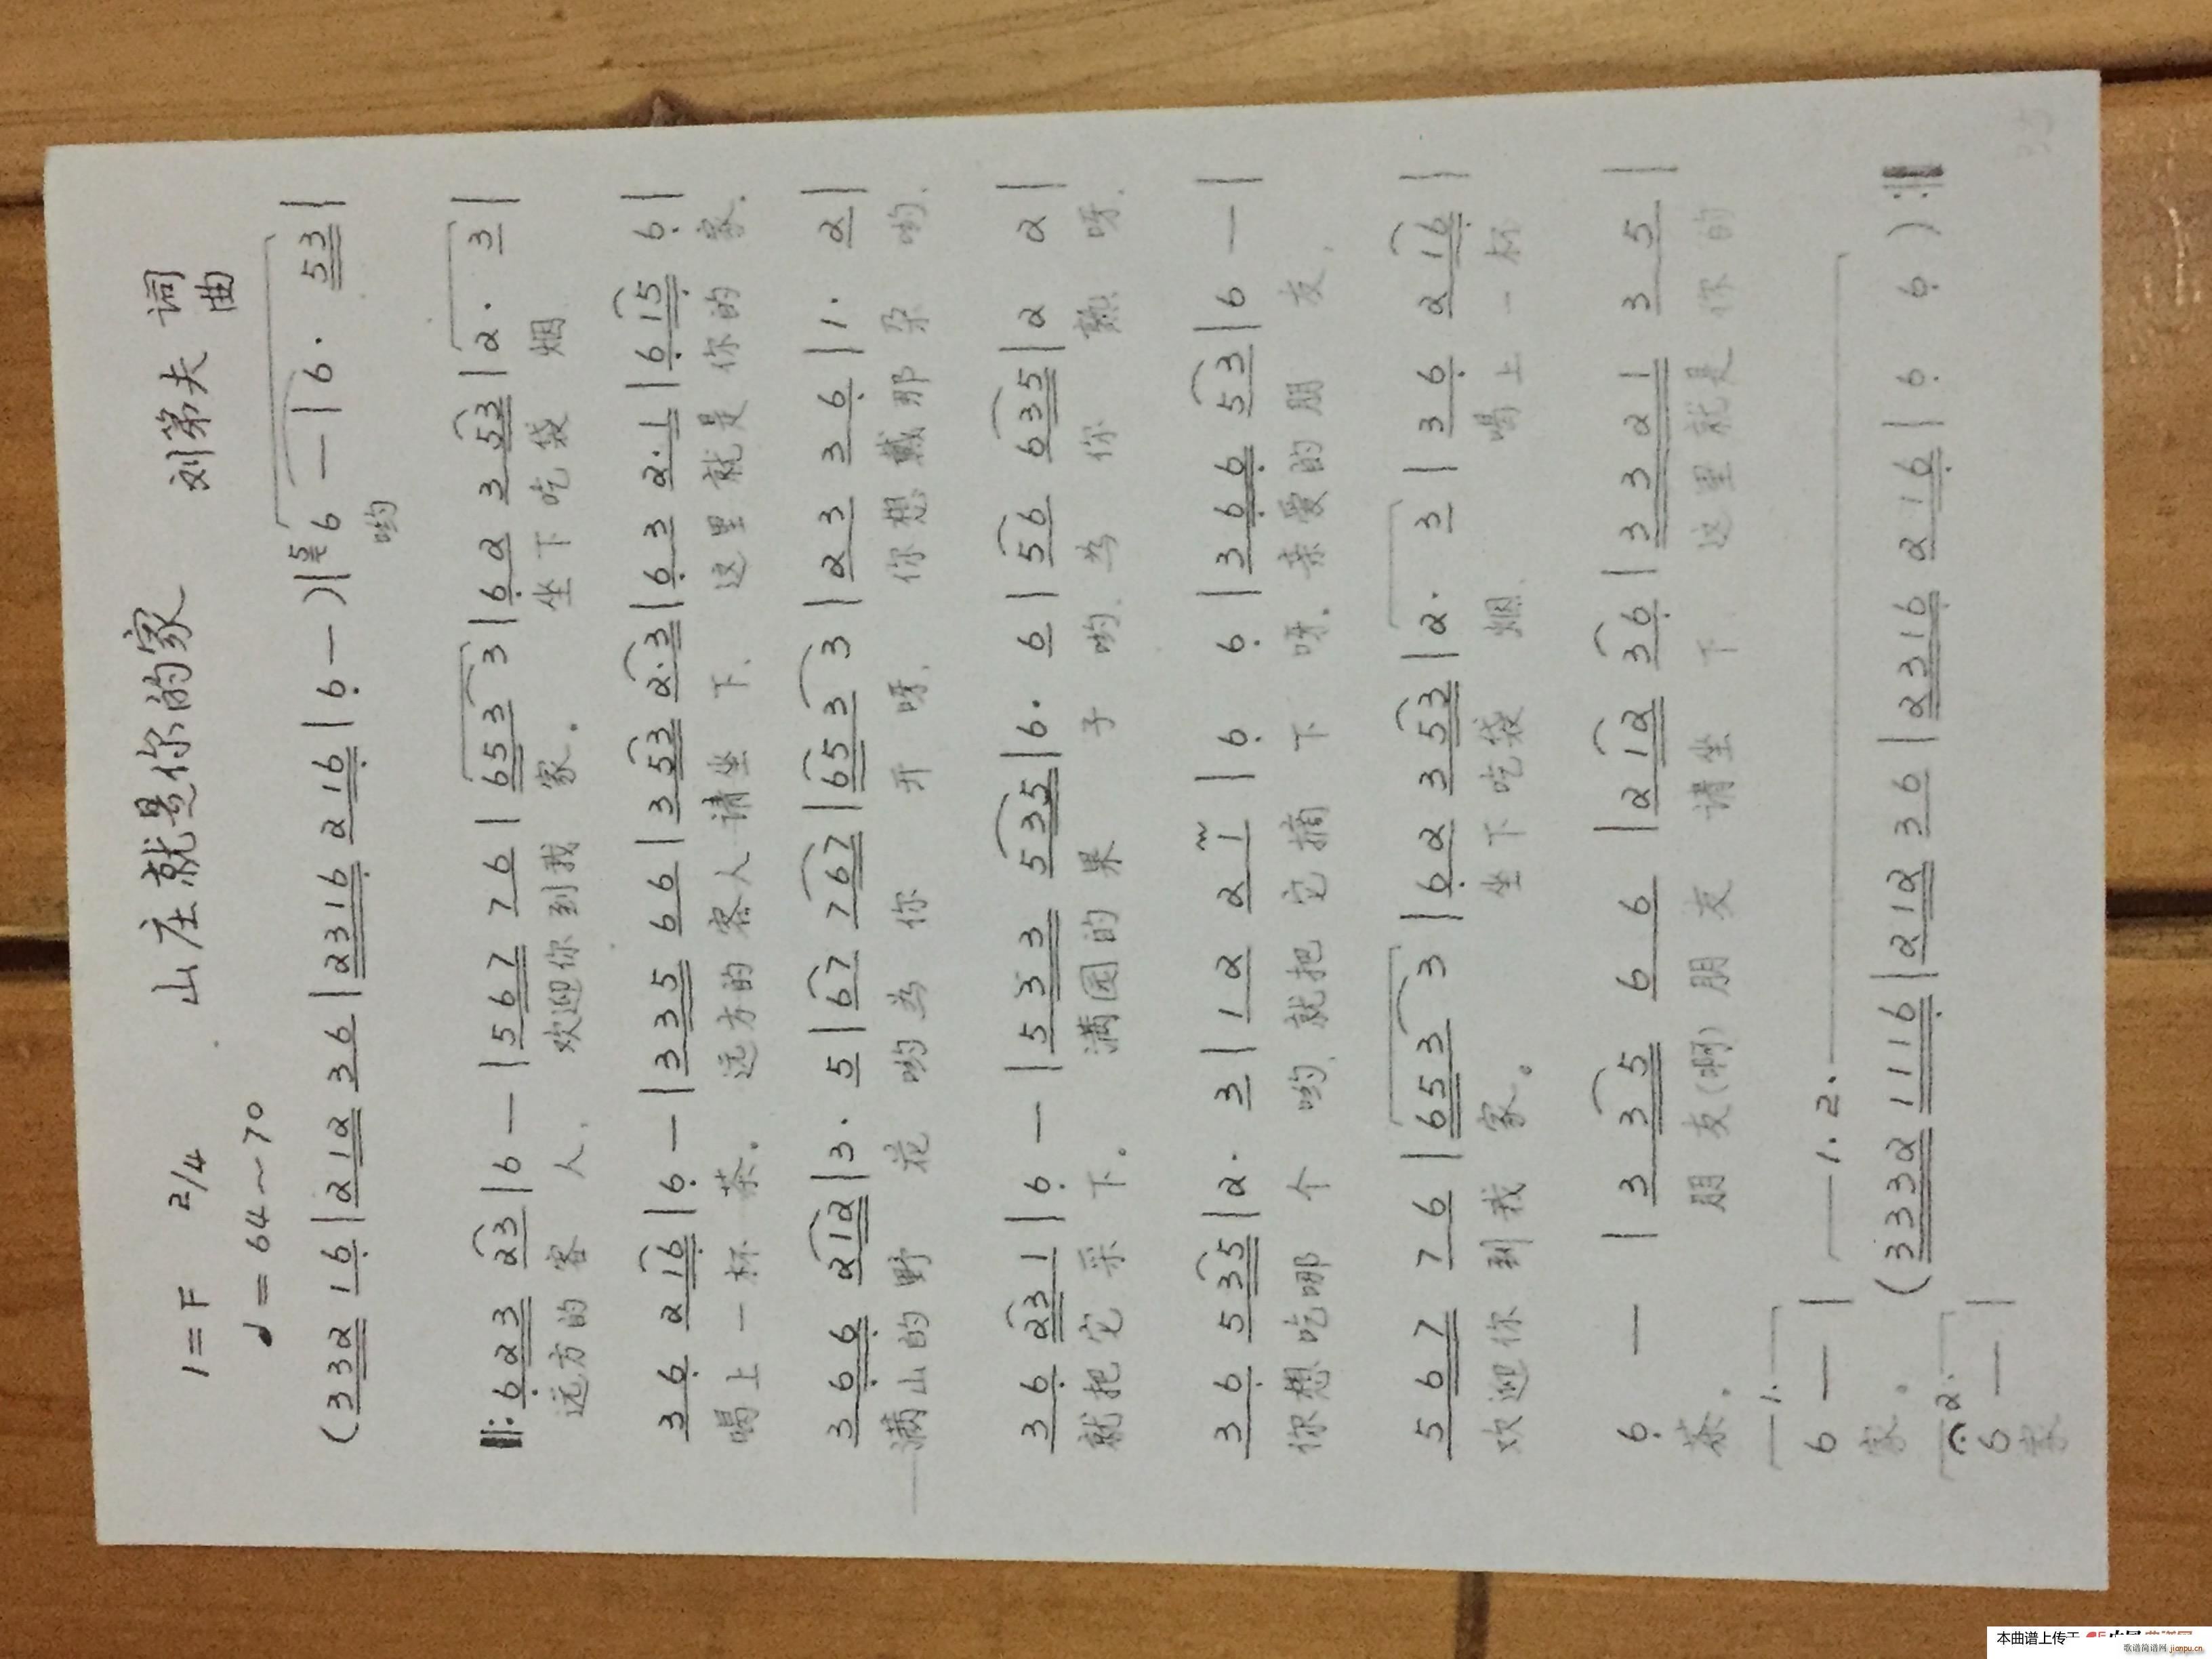 山庄就是你的家
1=F 2/4 刘第夫 词曲
♩=64～70
(332 16 | 212 36 | 2316 216 | 6 — )| 56 6 — | 6· 53 |
哟
‖: 6 2 3 23 | 6 — | 5 6 7 7 6 | 653 3 | 6 2 3 53 | 2· 3 |
远方的客人, 欢迎你到我家。 坐下吃袋烟
3 6 2 16 | 6 — | 3 3 5 6 6 | 3 53 2·3 | 6 3 2·1 | 6 15 6 |
喝上一杯茶。 远方的客人请坐下, 这里就是你的家.
3 6 6 212 | 3· 5 | 67 767 | 653 3 | 2 3 3 6 | 1· 2 |
满山的野花哟为你开呀, 你想戴那朵哟.
3 6 23 1 | 6 — | 5 3 3 5 35 | 6· 6 | 56 635 | 2 2 |
就把它采下。 满园的果子哟, 为你熟呀.
3 6 5 35 | 2· 3 | 1 2 2 1 | 6 6 | 3 6 6 53 | 6 — |
你想吃哪个哟, 就把它摘下呀. 亲爱的朋友,
5 6 7 7 6 | 653 3 | 6 2 3 53 | 2· 3 | 3 6 2 16 |
欢迎你到我家。 坐下吃袋烟, 喝上一杯
6 — | 3 35 6 6 | 2 12 36 | 3 3 2 1 3 5 |
茶。 朋友(啊)朋友请坐下 这里就是你的
1. 1.2.
6 — | (3332 1116 | 212 36 | 2316 216 | 6 6 ) :‖
家。
2.
6 — |
家
本曲谱上传于
歌谱简谱网 jianpu.cn